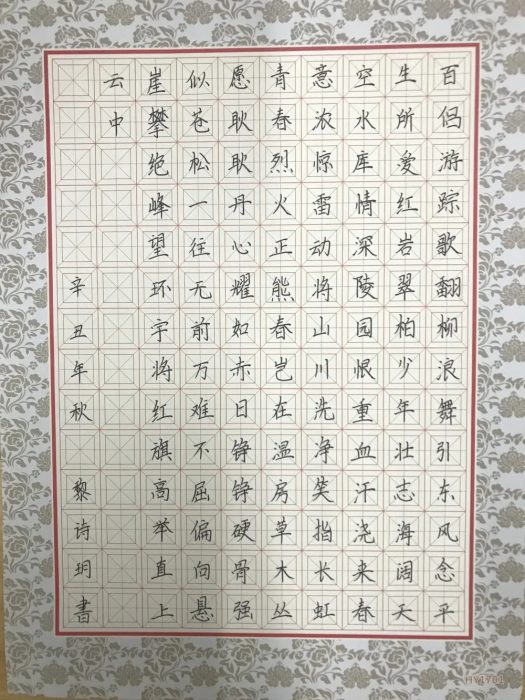 百侣游踪歌翻柳浪舞引东风念平
生所爱红岩翠柏少年壮志海阔天
空水库情深陵园恨重血汗浇来春
意浓惊雷动将山川洗净笑指长虹
青春烈火正熊春岂在温房草木丛
愿耿耿丹心耀如赤日铮铮硬骨强
似苍松一往无前万难不屈偏向悬
崖攀绝峰望环宇将红旗高举直上
云中
辛丑年秋 黎诗玥書
HY1701